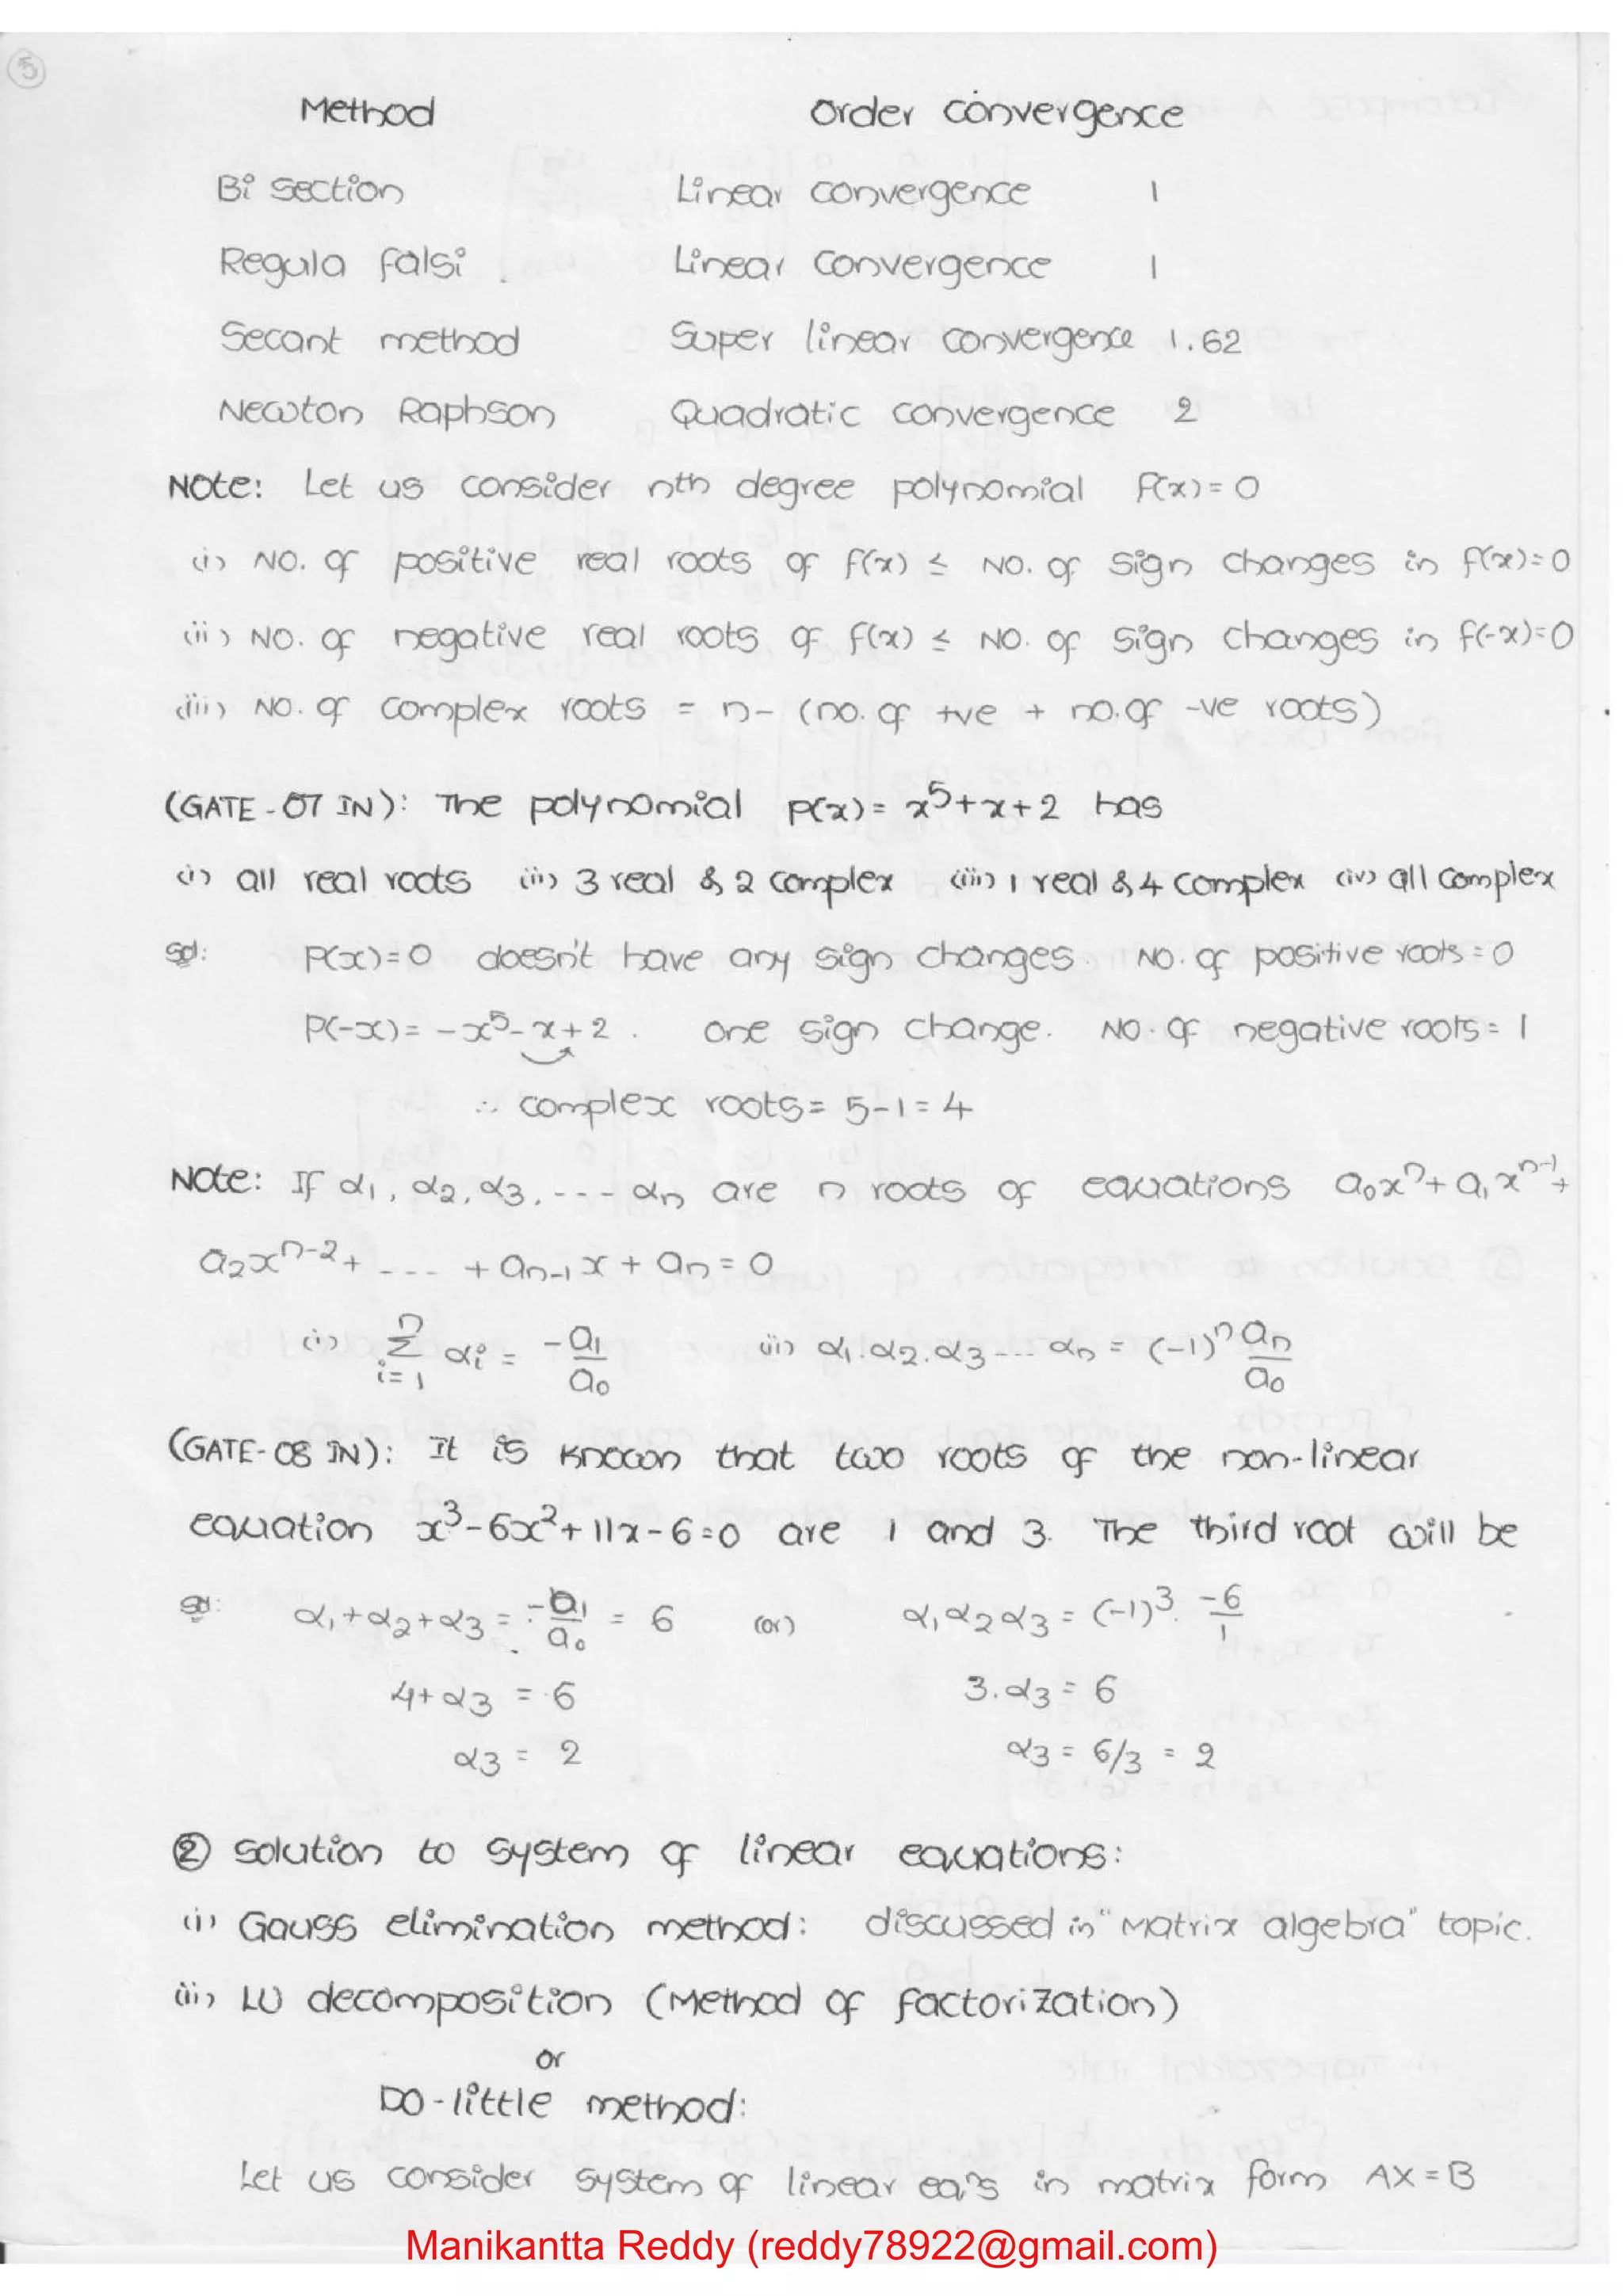 5
Method Order convergence
Bi section Linear convergence 1
Regula falsi Linear convergence 1
Secant method Super linear convergence 1.62
Newton Raphson Quadratic convergence 2
Note: Let us consider nth degree polynomial f(x)=0
(i) No. of positive real roots of f(x) ≤ No. of sign changes in f(x)=0
(ii) No. of negative real roots of f(x) ≤ No. of sign changes in f(-x)=0
(iii) No. of complex roots = n- (no. of +ve + no. of -ve roots)
(GATE-07 IN): The polynomial p(x) = x⁵+x+2 has
(i) all real roots (ii) 3 real & 2 complex (iii) 1 real & 4 complex (iv) all complex
Sol: P(x)=0 doesn't have any sign changes. No. of positive roots = 0
P(-x) = -x⁵-x+2. one sign change. No. of negative roots = 1
∴ complex roots = 5-1 = 4
Note: If α₁, α₂, α₃, ---- αₙ are n roots of equations a₀xⁿ + a₁xⁿ⁻¹ +
a₂xⁿ⁻² + ---- + aₙ₋₁x + aₙ = 0
(i) n Σ i=1 αi = -a₁/a₀ (ii) α₁.α₂.α₃---- αₙ = (-1)ⁿ aₙ/a₀
(GATE-08 IN): It is known that two roots of the non-linear
equation x³-6x²+11x-6=0 are 1 and 3. The third root will be
Sol: α₁+α₂+α₃ = -a₁/a₀ = 6 (or) α₁α₂α₃ = (-1)³. -6/1
4+α₃ = 6 3.α₃ = 6
α₃ = 2 α₃ = 6/3 = 2
② Solution to system of linear equations:
(i) Gauss elimination method: discussed in "Matrix algebra" topic.
(ii) LU decomposition (Method of factorization)
or
DO-little method:
Let us consider system of linear eq'ns in matrix form AX=B
Manikantta Reddy (reddy78922@gmail.com)